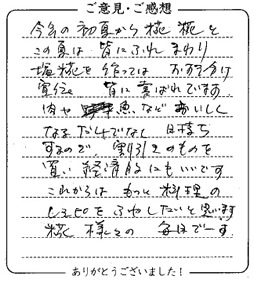 ご意見・ご感想
今年の初夏から糀、糀と
この夏は皆にふれまわり
塩糀を作ってはおすそ分け
宣伝、皆に喜ばれてます
肉や魚、などおいしく
なるだけでなく日持ち
するので割引きのものを
買い経済的にもいいです
これからはもっと料理の
レシピをふやしたいと思います
糀様々の毎日でーす
ありがとうございました!